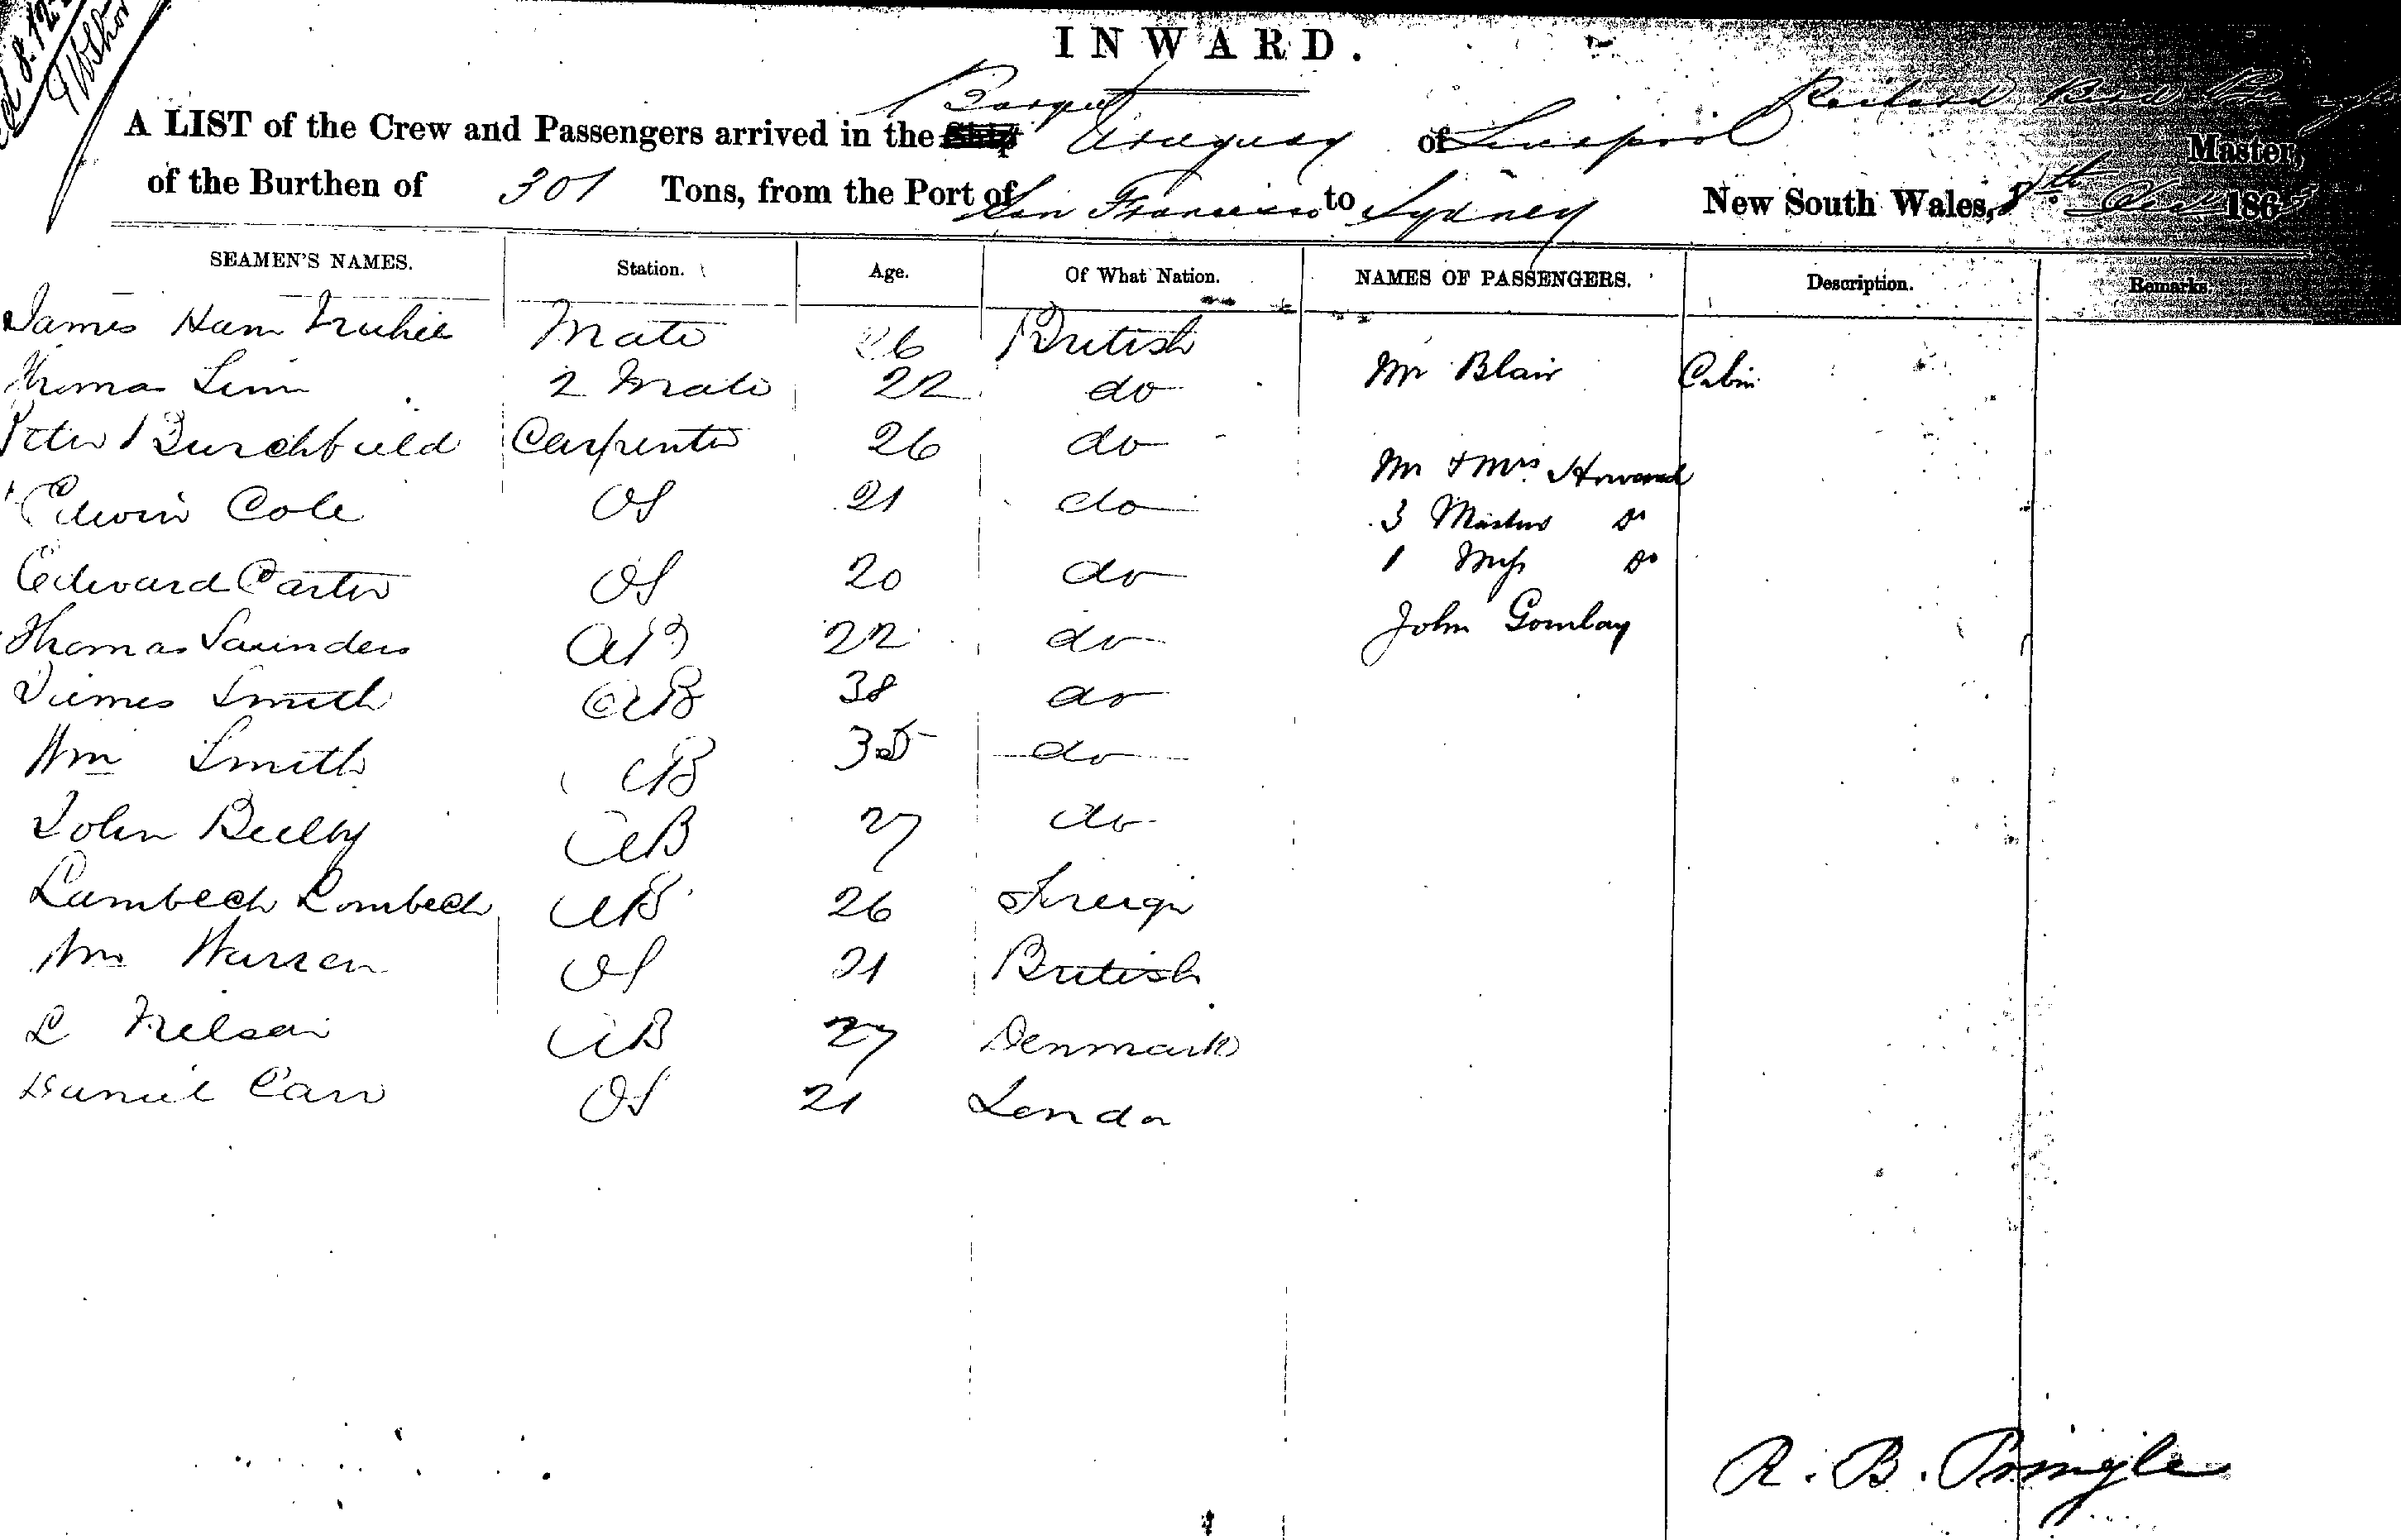 INWARD.
A LIST of the Crew and Passengers arrived in the Ship Barque Uruguay of Liverpool Richard Master,
of the Burthen of 301 Tons, from the Port of San Francisco to Sydney New South Wales, 8th 186
SEAMEN'S NAMES. Station. Age. Of What Nation. NAMES OF PASSENGERS. Description. Remarks.
James Ham Mate 26 British
Thomas 2 Mate 22 do Mr Blair Cabin
Peter Burchfield Carpenter 26 do Mr & Mrs. Howard
Edwin Cole OS 21 do 3 Masters Do
Edward Carter OS 20 do 1 Miss Do
Thomas Saunders AB 22 do John
James Smith AB 38 do
Wm Smith AB 35 do
John AB 27 do
Lambech Lombech AB 26 Foreign
Wm Warren OS 21 British
L Nelson AB 27 Denmark
Daniel Carr OS 21
R. B. Pringle